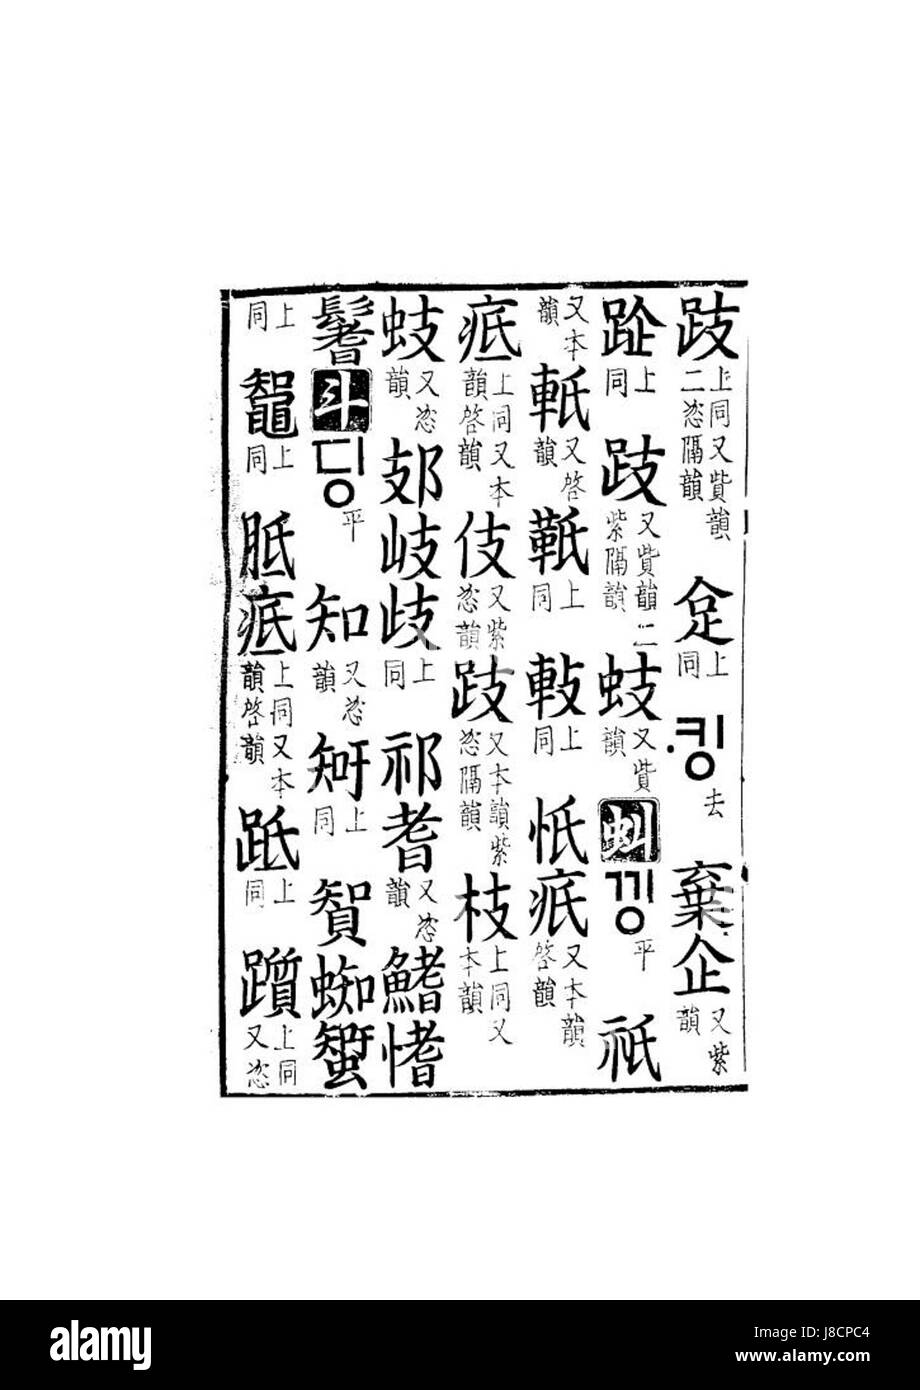 跂上同又貲韻二恣隔韻 上同 ·킹去 棄企又紫韻
上同 跂又貲韻二紫隔韻 蚑又貲韻 虯 낑平 祇
又本韻 軝又啓韻 上同 上同 忯疧又本韻啓韻
疷上同又本韻啓韻 伎又紫恣韻 跂又本韻紫恣隔韻 枝上同又本韻
蚑又恣韻 岐歧上同 祁耆又恣韻 鰭愭
鬐 斗 딩平 知又恣韻 上同 蜘
上同 鼅上同 胝疷上同又本韻啓韻 上同 躓上同又恣
alamy
Image ID: J8CPC4
www.alamy.com